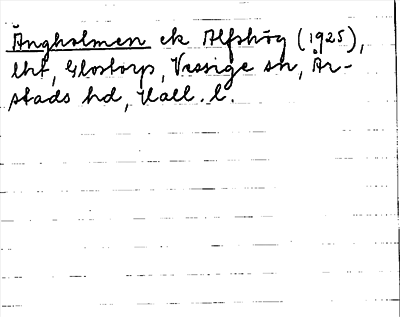 Ängholmen ek Alfshög (1925),
lht, Glostorp, Vessige sn, År-
stads hd, Hall. l.